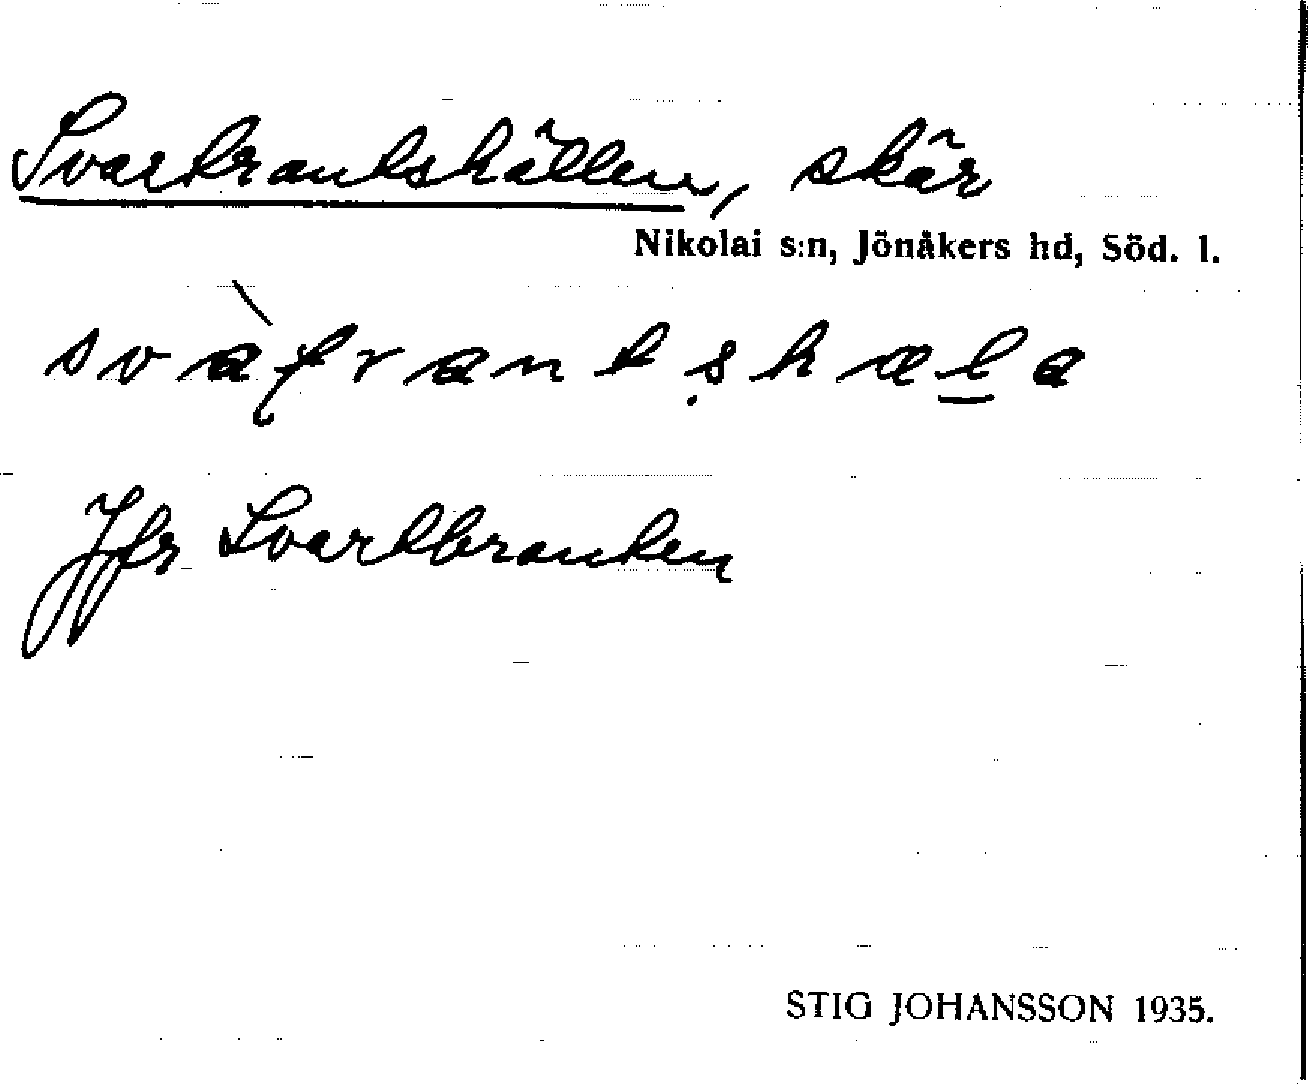 Svartrantshällen, skär
Nikolai s:n, Jönåkers hd, Söd. l.
svàʈrantṣhæla
Jfr Svartbranten
STIG JOHANSSON 1935.